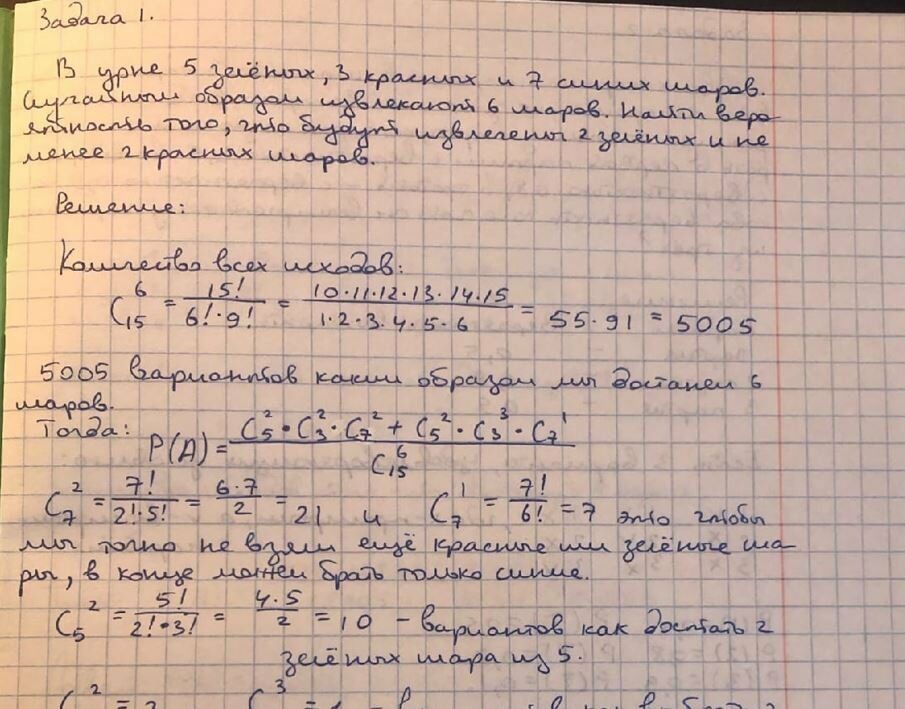 Задача 1.
В урне 5 зелёных, 3 красных и 7 синих шаров.
Случайным образом извлекают 6 шаров. Найти веро-
ятность того, что будут извлечены 2 зелёных и не
менее 2 красных шаров.
Решение:
Количество всех исходов:
C₁₅⁶ = 15!/(6!·9!) = (10·11·12·13·14·15)/(1·2·3·4·5·6) = 55·91 = 5005
5005 вариантов каким образом мы достанем 6
шаров.
Тогда: P(A) = (C₅²·C₃²·C₇² + C₅²·C₃³·C₇¹)/C₁₅⁶
C₇² = 7!/(2!·5!) = (6·7)/2 = 21 и C₇¹ = 7!/6! = 7 это чтобы
мы точно не взяли ещё красные или зелёные ша-
ры, в конце можем брать только синие.
C₅² = 5!/(2!·3!) = (4·5)/2 = 10 – вариантов как достать 2
зелёных шара из 5.